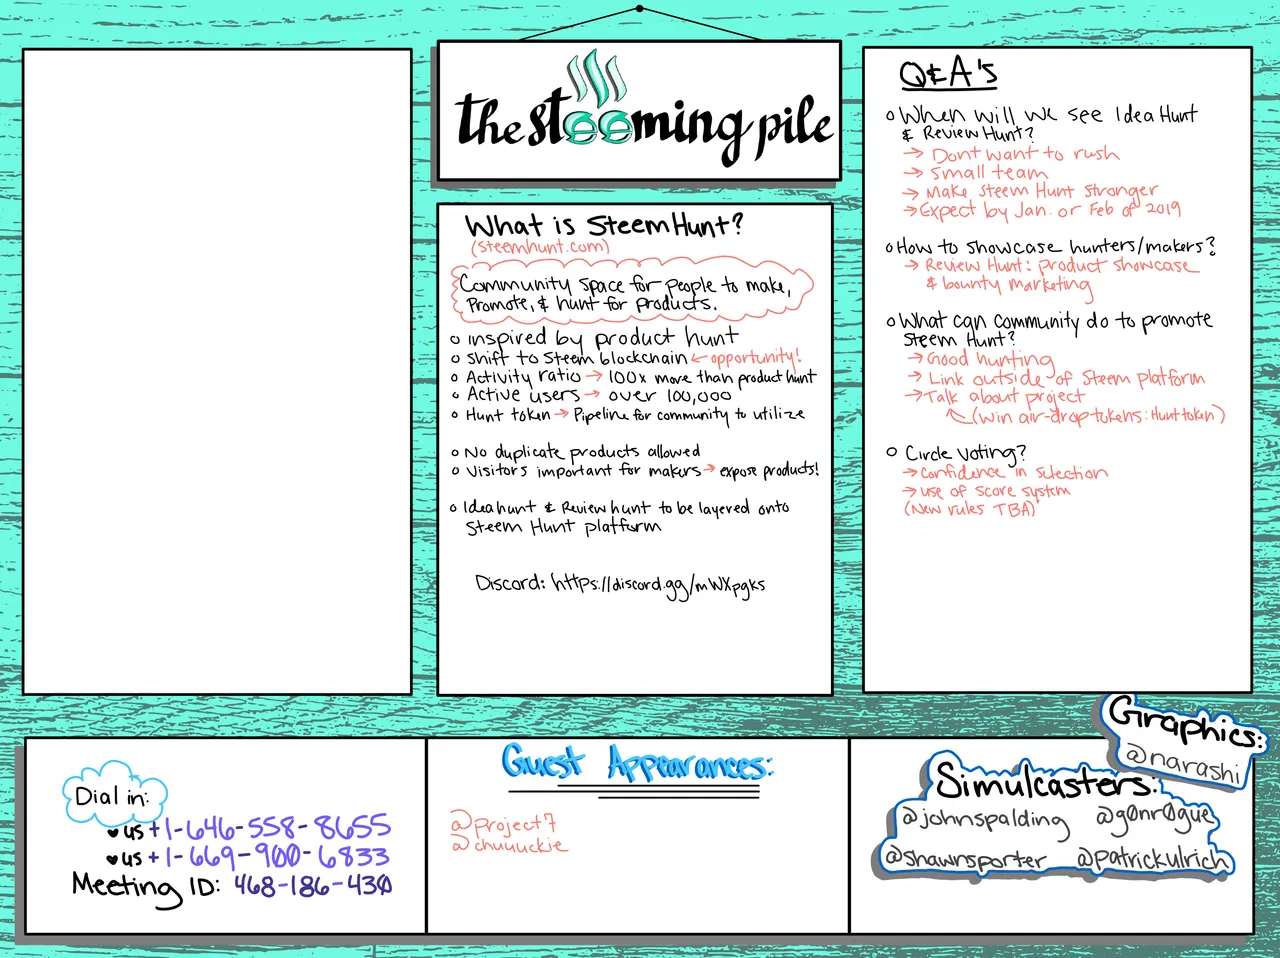 the steeming pile
What is SteemHunt?
(steemhunt.com)
Community space for people to make,
Promote, & hunt for products.
o inspired by product hunt
o Shift to Steem blockchain ← opportunity!
o Activity ratio → 100x more than product hunt
o Active users → over 100,000
o Hunt token → Pipeline for community to utilize
o No duplicate products allowed
o Visitors important for makers → expose products!
o Ideahunt & Review hunt to be layered onto
Steem Hunt platform
Discord: https://discord.gg/mWXpgks
Q&A's
o When will we see Idea Hunt
& Review Hunt?
→ Dont want to rush
→ Small team
→ Make Steem Hunt Stronger
→ Expect by Jan. or Feb of 2019
o How to showcase hunters/makers?
→ Review Hunt: product showcase
& bounty marketing
o What can community do to promote
Steem Hunt?
→ Good hunting
→ Link outside of Steem platform
→ Talk about project
← (win air-drop tokens: Hunt token)
o Circle voting?
→ Confidence in selection
→ use of score system
(New rules TBA)
Dial in:
♥ us +1-646-558-8655
♥ us +1-669-900-6833
Meeting ID: 468-186-430
Guest Appearances:
@project7
@chuuuckie
Graphics:
@narashi
Simulcasters:
@johnspalding @g0nr0gue
@shawnsporter @patrickulrich